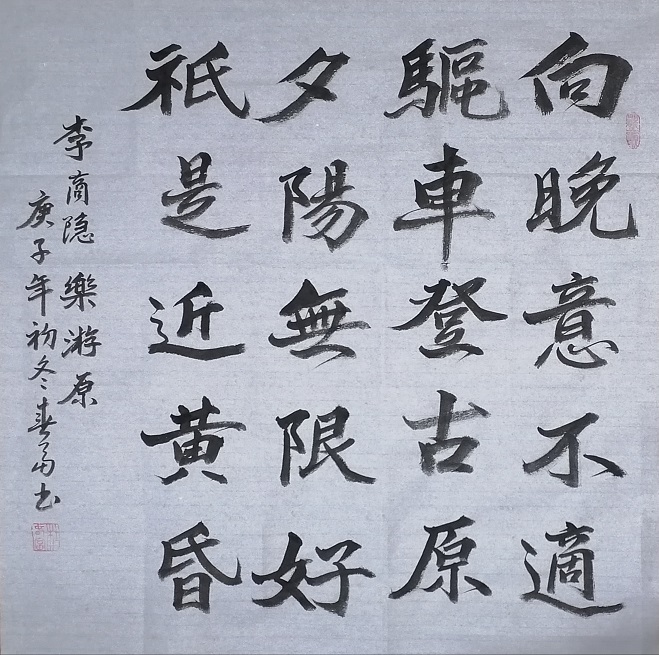 向晚意不適
驅車登古原
夕陽無限好
祇是近黄昏
李商隐 樂游原
庚子年初冬春富书